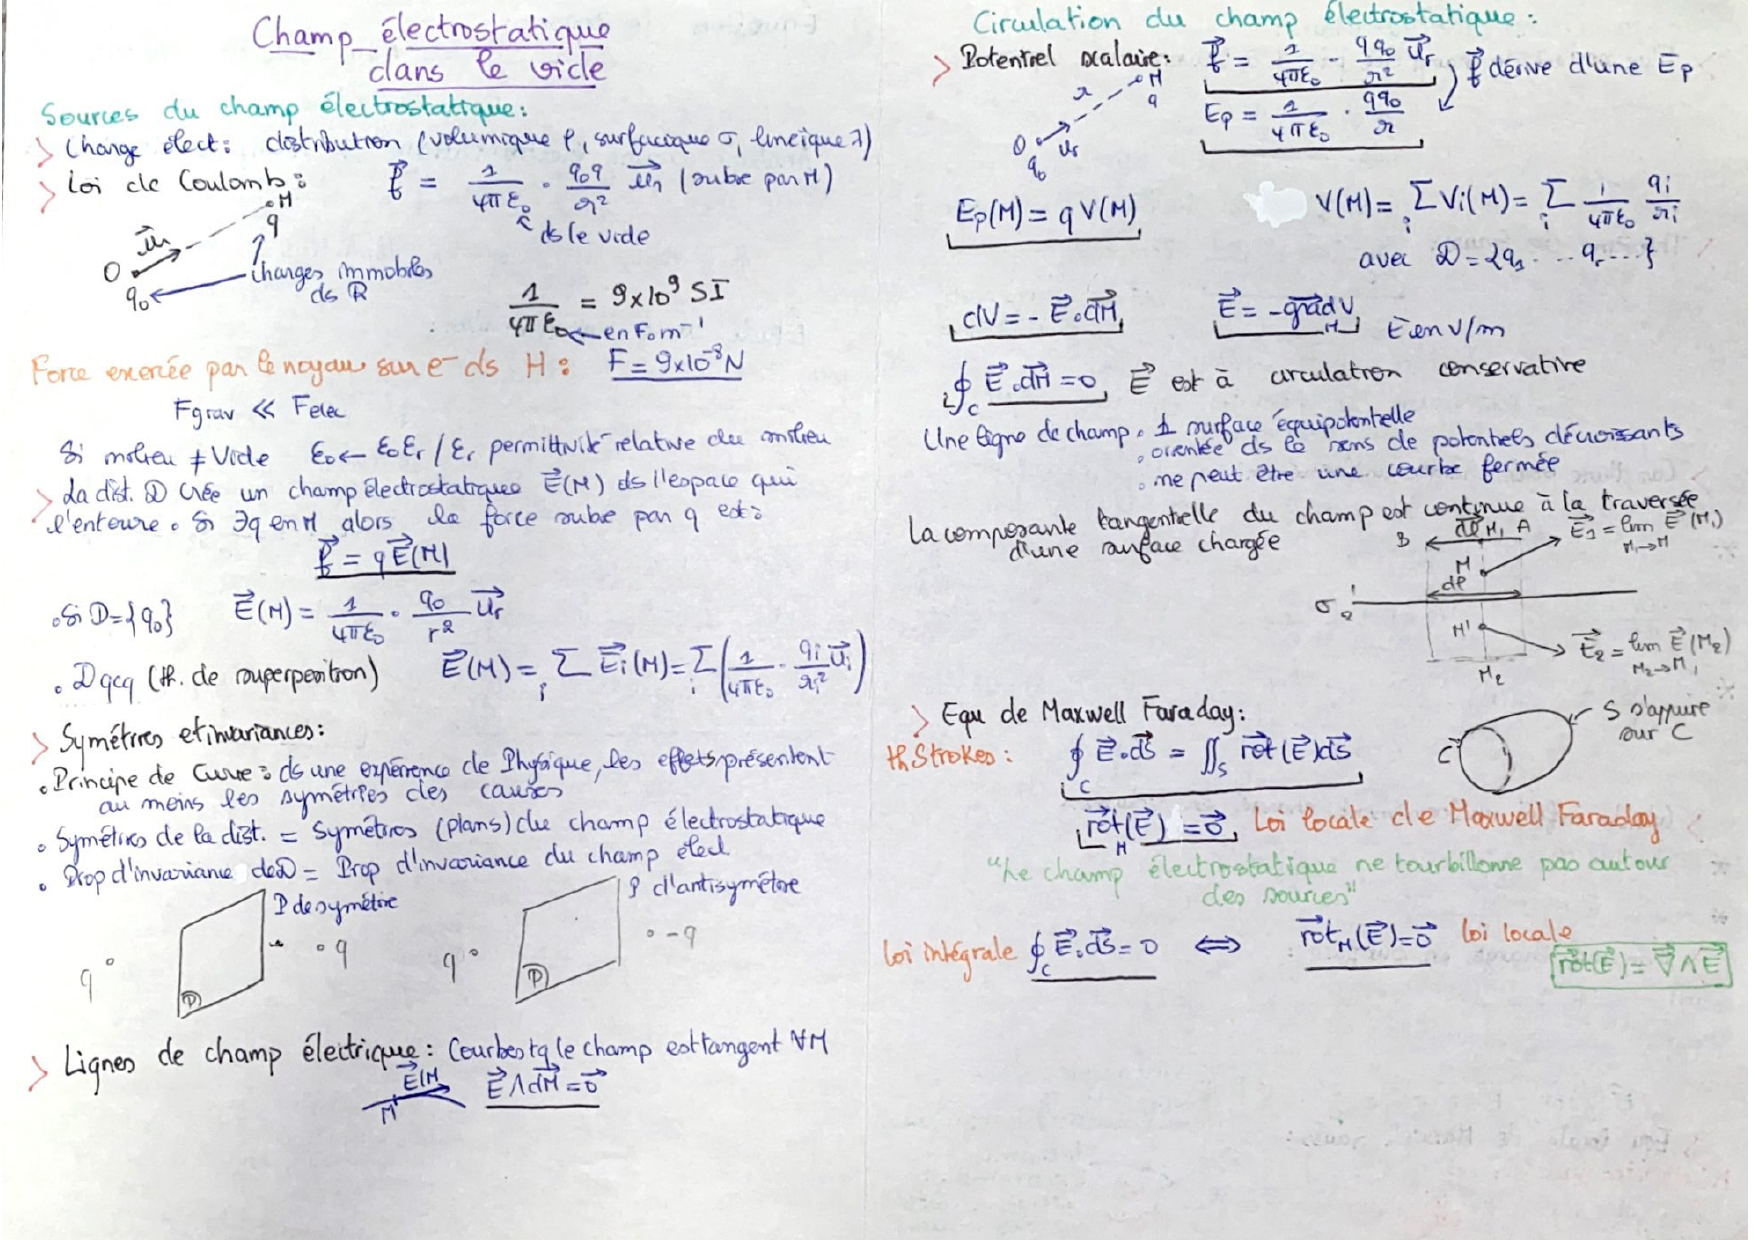 Champ électrostatique
dans le vide
Sources du champ électrostatique:
> Charge élect: distribution (volumique ρ, surfacique σ, linéique λ)
> Loi de Coulomb: f⃗ = 1/4πε₀ · q₀q/r² u⃗r (subie par M)
ds le vide
O q₀ u⃗r M q
charges immobiles
ds R
1/4πε₀ = 9x10⁹ SI
← en F.m⁻¹
Force exercée par le noyau sur e⁻ ds H: F = 9x10⁻⁸N
Fgrav << Felec
Si milieu ≠ Vide ε₀ ← ε₀εr / εr permittivité relative du milieu
> La dist. D crée un champ électrostatique E⃗(M) ds l'espace qui
l'entoure. Si ∃q en M alors la force subie par q est:
f⃗ = qE⃗(M)
. Si D={q₀} E⃗(M) = 1/4πε₀ · q₀/r² u⃗r
. D qcq (th. de superposition) E⃗(M) = Σi E⃗i(M) = Σi (1/4πε₀ · qi/ri² u⃗i)
> Symétries et invariances:
. Principe de Curie: ds une expérience de Physique, les effets présentent
au moins les symétries des causes
. Symétries de la dist. = Symétries (plans) du champ électrostatique
. Prop d'invariance de D = Prop d'invariance du champ élect
P de symétrie
P d'antisymétrie
q (P) q
q (P) -q
> Lignes de champ électrique: Courbes tq le champ est tangent ∀M
E⃗(M M E⃗∧dM⃗=0⃗
Circulation du champ électrostatique:
> Potentiel scalaire: f⃗ = 1/4πε₀ · qq₀/r² u⃗r f⃗ dérive d'une Ep
Ep = 1/4πε₀ · qq₀/r
O q₀ u⃗r r M q
Ep(M) = qV(M)
V(M) = Σi Vi(M) = Σi 1/4πε₀ qi/ri
avec D={q₁...qr...}
dV = - E⃗.dM⃗ E⃗ = -grad⃗M V E en V/m
∮C E⃗.dM⃗ = 0, E⃗ est à circulation conservative
Une ligne de champ . ⊥ surface équipotentielle
. orientée ds le sens de potentiels décroissants
. ne peut être une courbe fermée
La composante tangentielle du champ est continue à la traversée
d'une surface chargée
B dl⃗ M₁ A E⃗₁ = lim E⃗(M₁)
M₁→M
M
dl
σ 1
2
M' E⃗₂ = lim E⃗(M₂)
M₂→M
M₂
> Equ de Maxwell Faraday:
th Strokes: ∮C E⃗.ds⃗ = ∬S rot⃗(E⃗)ds⃗
S s'appuie
sur C
C
rot⃗M(E⃗) = 0⃗ Loi locale de Maxwell Faraday
"Le champ électrostatique ne tourbillonne pas autour
des sources"
Loi intégrale ∮C E⃗.ds⃗ = 0 ⇔ rot⃗M(E⃗)=0⃗ loi locale
rot⃗(E⃗) = ∇⃗∧E⃗